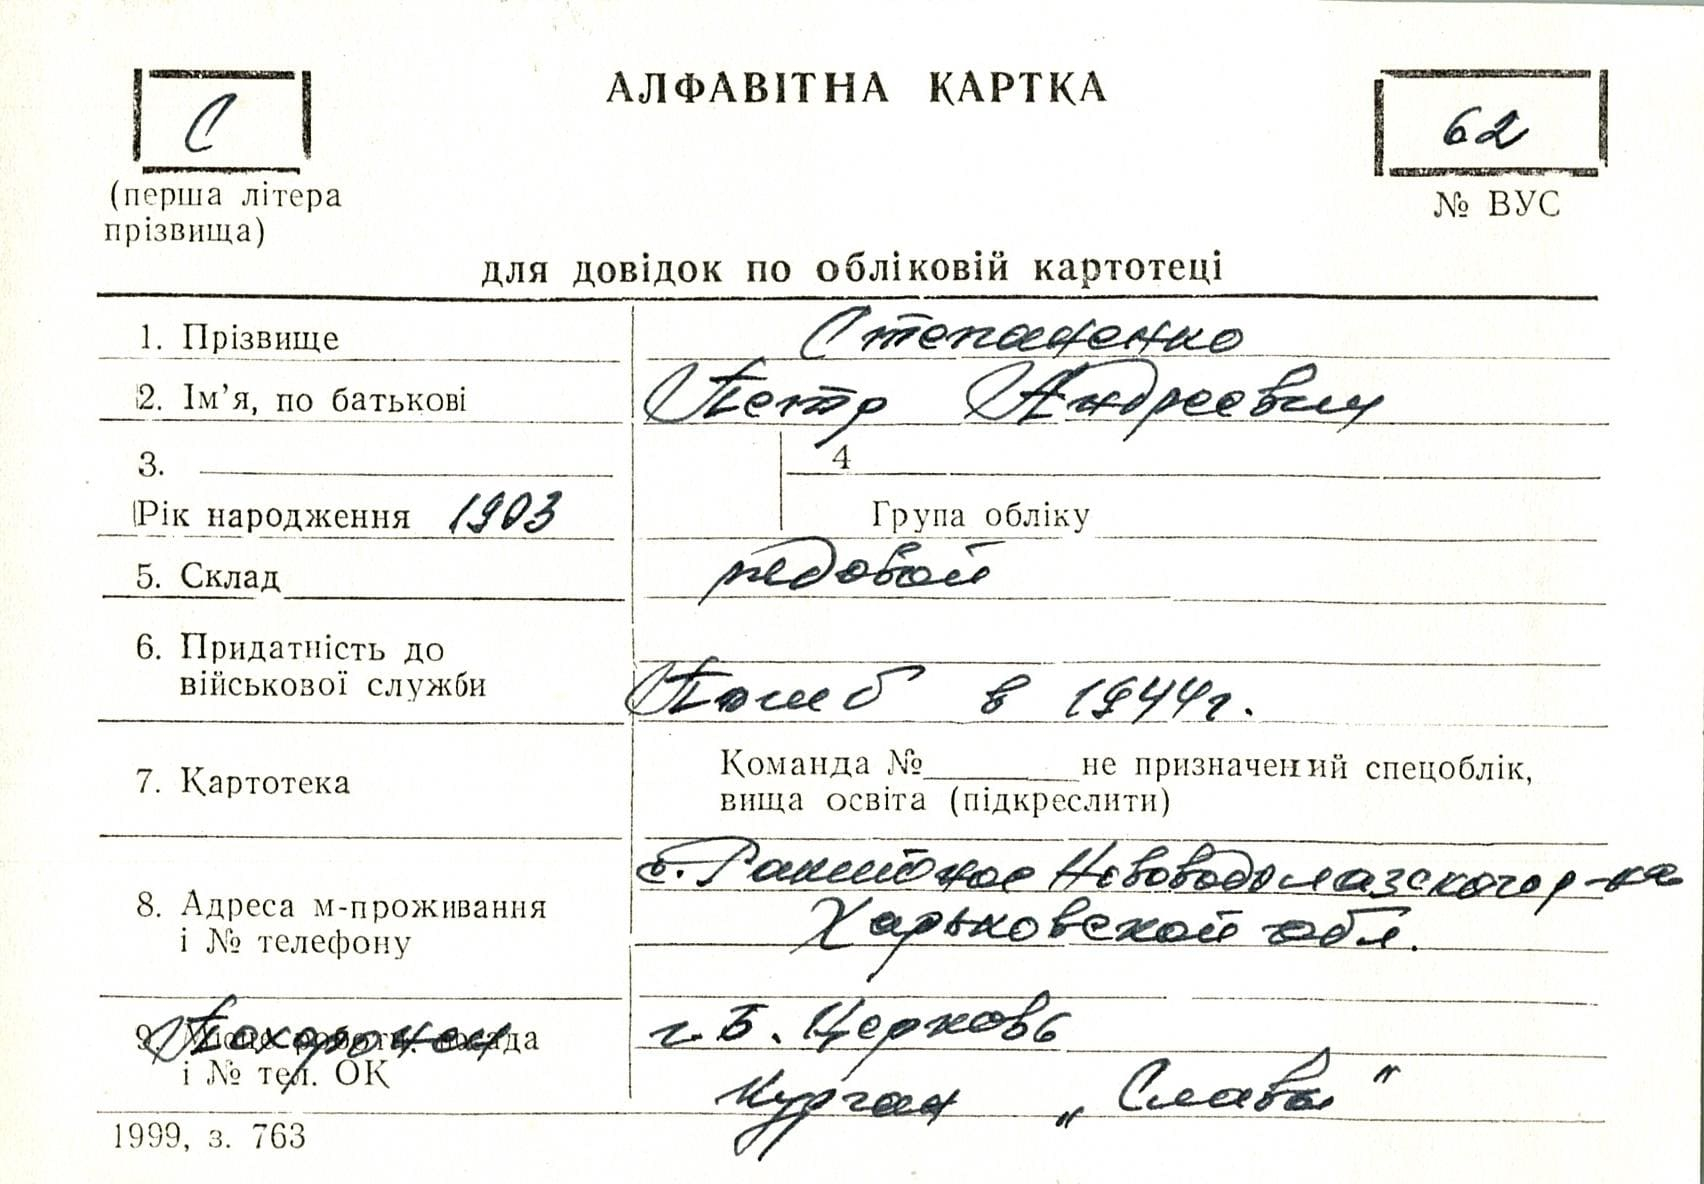 АЛФАВІТНА КАРТКА
С
62
(перша літера
прізвища)
№ ВУС
для довідок по обліковій картотеці
1. Прізвище Степаненко
2. Ім’я, по батькові Петр Андреевич
3. 4
Рік народження 1903 Група обліку
5. Склад рядовой
6. Придатність до
військової служби Погиб в 1944г.
7. Картотека
Команда №______не призначений спецоблік,
вища освіта (підкреслити)
8. Адреса м-проживання
і № телефону
с. Ракитное Нововодолазского р-на
Харьковской обл.
9. Місце роботи, посада
Похоронен
і № тел. ОК
г. Б. Церковь
Курган „Славы”
1999, з. 763